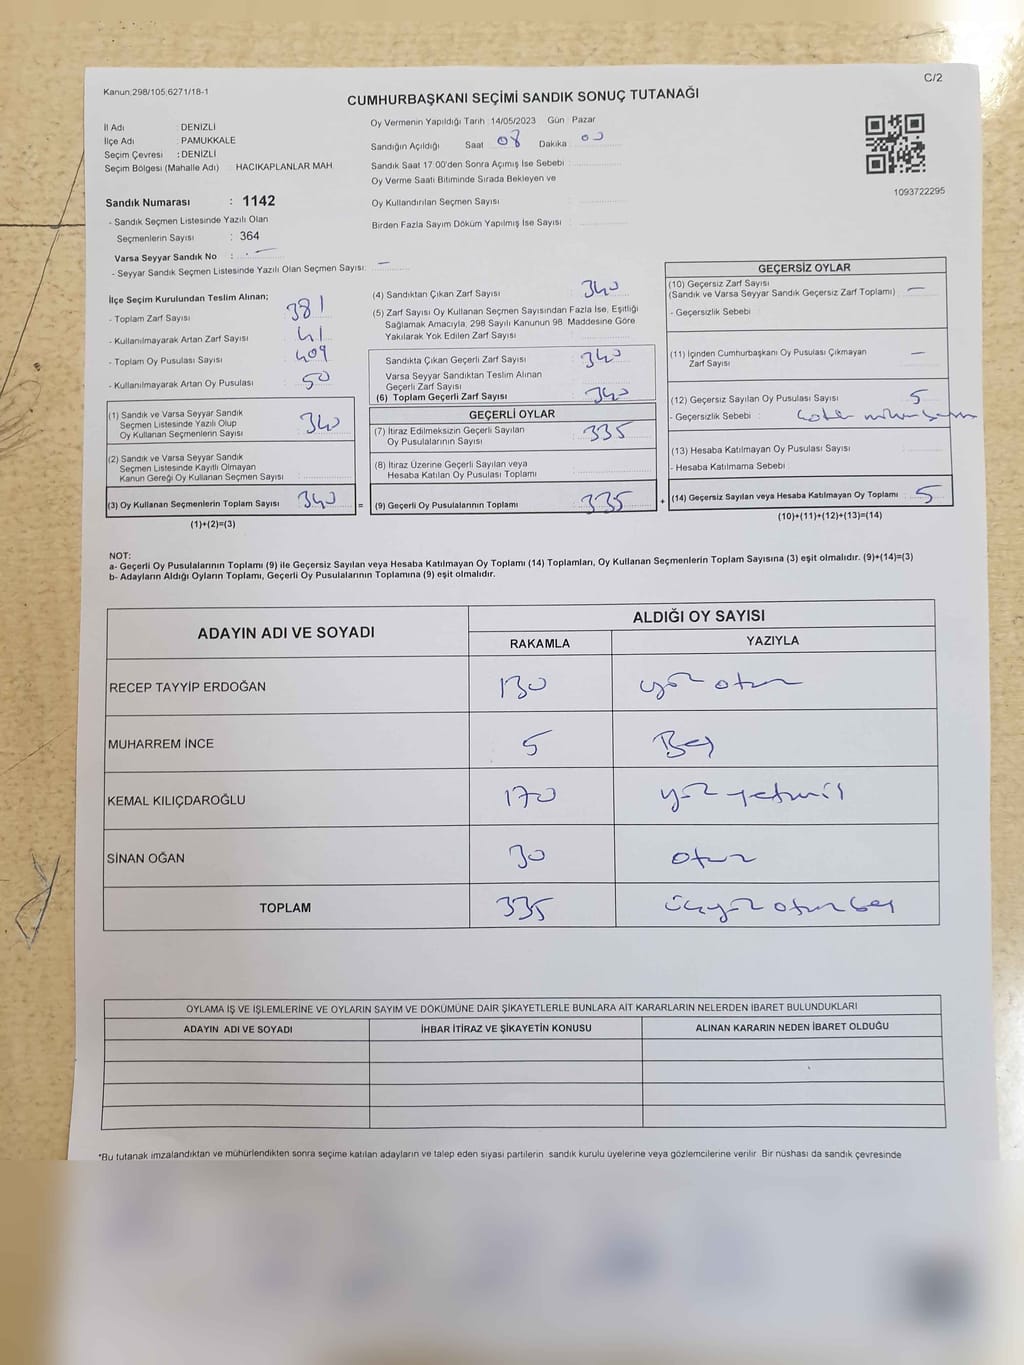 Kanun:298/105,6271/18-1
C/2
CUMHURBAŞKANI SEÇİMİ SANDIK SONUÇ TUTANAĞI
İl Adı : DENİZLİ
İlçe Adı : PAMUKKALE
Seçim Çevresi : DENİZLİ
Seçim Bölgesi (Mahalle Adı) : HACIKAPLANLAR MAH.
Oy Vermenin Yapıldığı Tarih : 14/05/2023 Gün : Pazar
Sandığın Açıldığı Saat 08 Dakika : 00
Sandık Saat 17:00'den Sonra Açımış İse Sebebi :
Oy Verme Saati Bitiminde Sırada Bekleyen ve
Oy Kullandırılan Seçmen Sayısı :
Birden Fazla Sayım Döküm Yapılmış İse Sayısı :
1093722295
Sandık Numarası : 1142
- Sandık Seçmen Listesinde Yazılı Olan
Seçmenlerin Sayısı : 364
Varsa Seyyar Sandık No : -
- Seyyar Sandık Seçmen Listesinde Yazılı Olan Seçmen Sayısı: -
İlçe Seçim Kurulundan Teslim Alınan;
- Toplam Zarf Sayısı : 381
- Kullanılmayarak Artan Zarf Sayısı : 41
- Toplam Oy Pusulası Sayısı : 409
- Kullanılmayarak Artan Oy Pusulası : 50
(1) Sandık ve Varsa Seyyar Sandık
Seçmen Listesinde Yazılı Olup
Oy Kullanan Seçmenlerin Sayısı : 340
(2) Sandık ve Varsa Seyyar Sandık
Seçmen Listesinde Kayıtlı Olmayan
Kanun Gereği Oy Kullanan Seçmen Sayısı :
(3) Oy Kullanan Seçmenlerin Toplam Sayısı : 340 =
(1)+(2)=(3)
(4) Sandıktan Çıkan Zarf Sayısı : 340
(5) Zarf Sayısı Oy Kullanan Seçmen Sayısından Fazla İse, Eşitliği
Sağlamak Amacıyla, 298 Sayılı Kanunun 98. Maddesine Göre
Yakılarak Yok Edilen Zarf Sayısı :
Sandıkta Çıkan Geçerli Zarf Sayısı : 340
Varsa Seyyar Sandıktan Teslim Alınan
Geçerli Zarf Sayısı :
(6) Toplam Geçerli Zarf Sayısı : 340
GEÇERLİ OYLAR
(7) İtiraz Edilmeksizin Geçerli Sayılan
Oy Pusulalarının Sayısı : 335
(8) İtiraz Üzerine Geçerli Sayılan veya
Hesaba Katılan Oy Pusulası Toplamı :
(9) Geçerli Oy Pusulalarının Toplamı : 335 +
GEÇERSİZ OYLAR
(10) Geçersiz Zarf Sayısı
(Sandık ve Varsa Seyyar Sandık Geçersiz Zarf Toplamı) : -
- Geçersizlik Sebebi :
(11) İçinden Cumhurbaşkanı Oy Pusulası Çıkmayan
Zarf Sayısı : -
(12) Geçersiz Sayılan Oy Pusulası Sayısı : 5
- Geçersizlik Sebebi :
(13) Hesaba Katılmayan Oy Pusulası Sayısı :
- Hesaba Katılmama Sebebi :
(14) Geçersiz Sayılan veya Hesaba Katılmayan Oy Toplamı : 5
(10)+(11)+(12)+(13)=(14)
NOT:
a- Geçerli Oy Pusulalarının Toplamı (9) ile Geçersiz Sayılan veya Hesaba Katılmayan Oy Toplamı (14) Toplamları, Oy Kullanan Seçmenlerin Toplam Sayısına (3) eşit olmalıdır. (9)+(14)=(3)
b- Adayların Aldığı Oyların Toplamı, Geçerli Oy Pusulalarının Toplamına (9) eşit olmalıdır.
ADAYIN ADI VE SOYADI
ALDIĞI OY SAYISI
RAKAMLA YAZIYLA
RECEP TAYYİP ERDOĞAN 130 yüz otuz
MUHARREM İNCE 5 Beş
KEMAL KILIÇDAROĞLU 170 yüz yetmiş
SİNAN OĞAN 30 otuz
TOPLAM 335 üçyüz otuz beş
OYLAMA İŞ VE İŞLEMLERİNE VE OYLARIN SAYIM VE DÖKÜMÜNE DAİR ŞİKAYETLERLE BUNLARA AİT KARARLARIN NELERDEN İBARET BULUNDUKLARI
ADAYIN ADI VE SOYADI İHBAR İTİRAZ VE ŞİKAYETİN KONUSU ALINAN KARARIN NEDEN İBARET OLDUĞU
*Bu tutanak imzalandıktan ve mühürlendikten sonra seçime katılan adayların ve talep eden siyasi partilerin sandık kurulu üyelerine veya gözlemcilerine verilir. Bir nüshası da sandık çevresinde